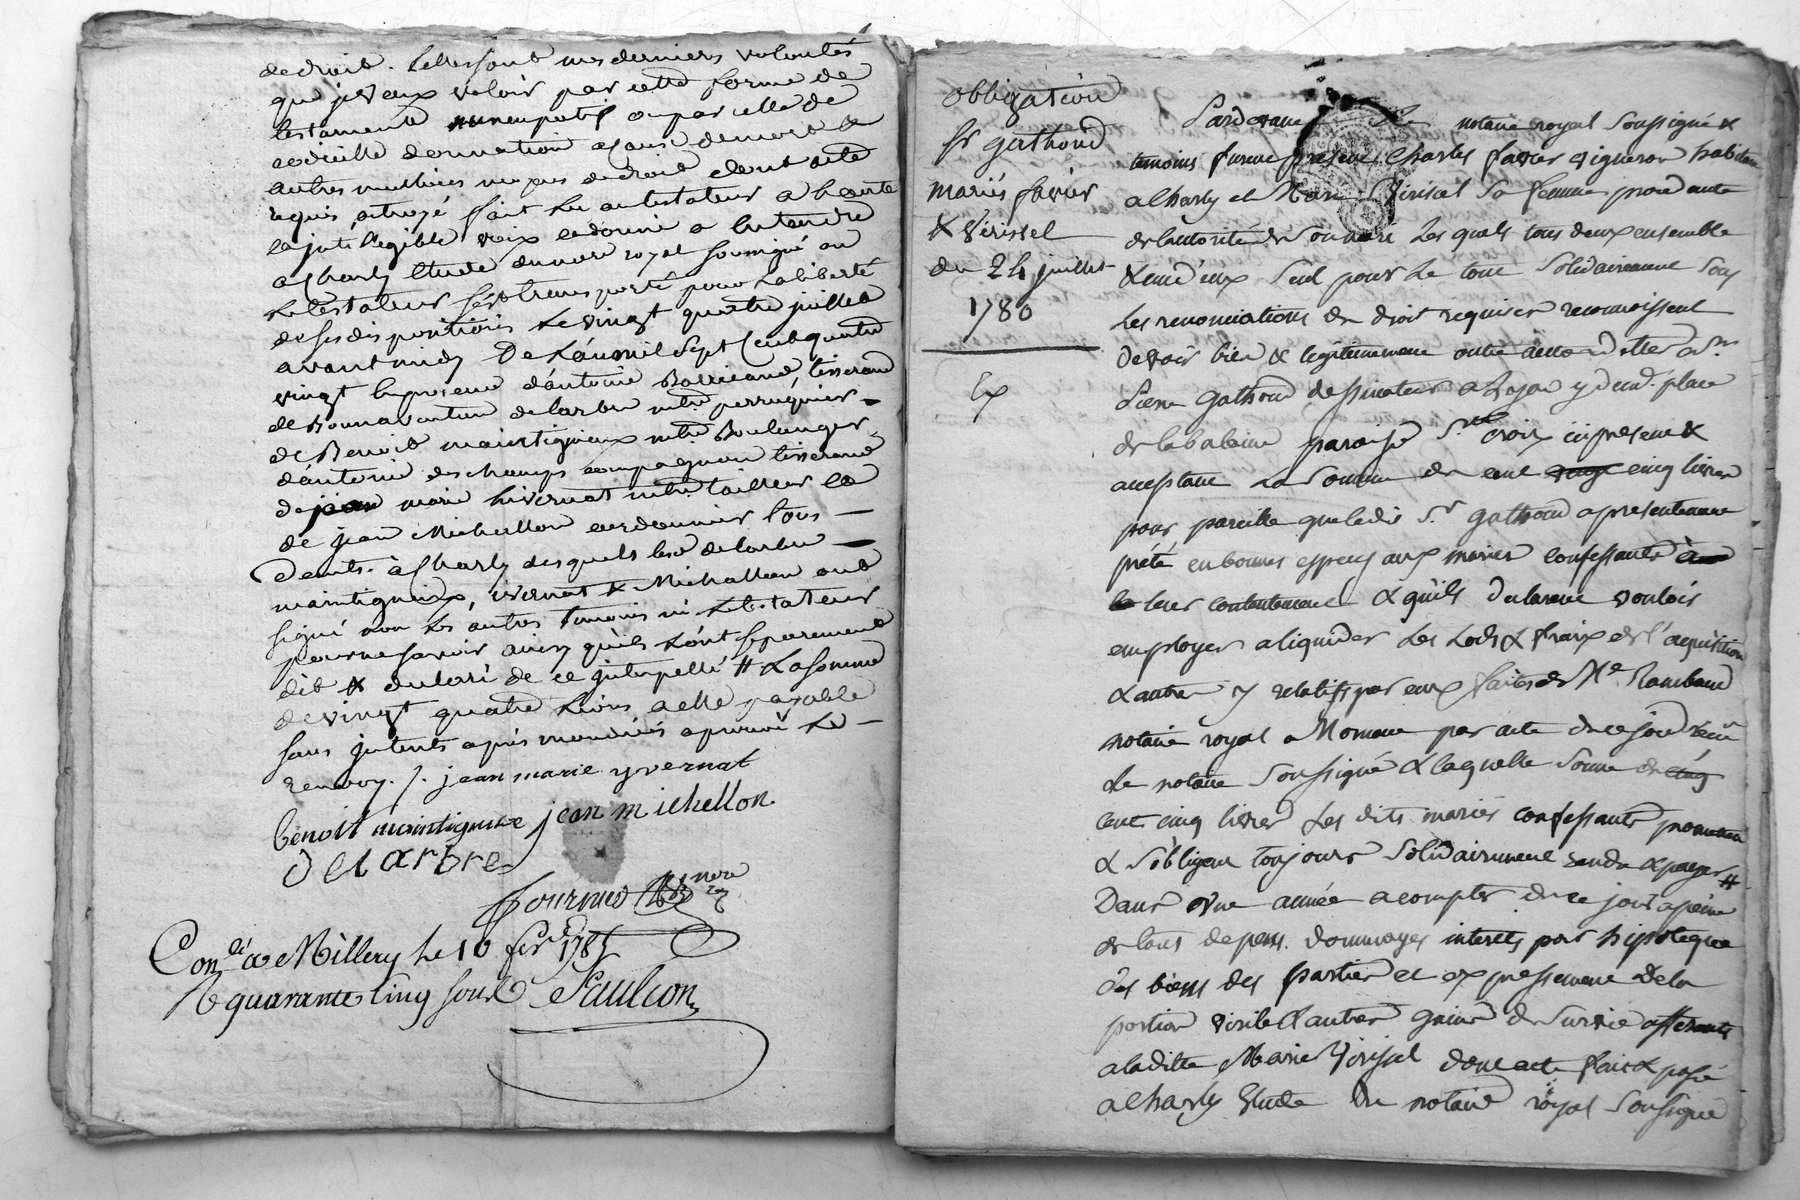 de droit. telles sont mes dernieres volontés
que je veux valoir par cette forme de
testament nuncupatif ou par celle de
codicille donnation a cause de mort &
autres meilheures de droit dont acte
requis octroyé fait lu au testateur a haute
& intelligible voix & donné a entendre
a Charly Etude du nore royal soussigné ou
le testateur s'est transporté pour la liberté
de ses dispositions le vingt quatre juillet
avant midy De L'an mil sept cent quatre
vingt En presence d'antoine tisserand
de Bonnaventure delarbre mtre perruquier
de Benoit maintigneux mtre Boulanger
d'antoine deschamps compagnon tisserand
de jean marie hivernat mtre tailleur &
de jean Michallon cordonnier tous
demts. à Charly desquels les d. delarbre
maintigneux, ivernat & Michallon ont
signé non les autres temoins ni le testateur
pour ne savoir ainsy qu'ils L'ont separement
dit & declaré de ce interpellé # La somme
de vingt quatre livres a elle payable
sans interets après mon décès aprouvé le
renvoy. /. jean marie yvernat
benoit maintigneux jean michellon
delarbre
fournier nore
Con.lé a Millery le 10 fer 1781
R quarante cinq sous Paulcon
obligation
Sr gathoud
mariés favier
& Virissel
du 24 juillet
1780
Ex
Pardevant Le notaire royal soussigné &
temoins furent presens Charles favier vigneron habitant
a Charly et Marie Virissel sa femme procedante
de l'autorité de son mari Lesquels tous deux ensemble
& l'un d'eux seul pour Le tout solidairement sous
Les renonciations de droit requises reconnoissent
devoir bien & legitimement au Sr.
Pierre Gathoud dessinateur a Lyon y demt. place
de la baleine paroisse Ste croix icy present &
acceptant La somme de cent cinq livres
pour pareille que ledit Sr gathoud a presentement
prété en bonnes especes aux mariés confessants à
leur contentement & qu'ils declarent vouloir
employer a liquider Les Lods & fraix de l'aquisition
& autres y relatifs par eux faite de Me Rambaud
notaire royal a Mornant par acte de ce jour recu
Le notaire soussigné & laquelle somme de
cent cinq livres Les dits mariés confessants promettent
& s'obligent toujours solidairement rendre & payer #
Dans une année a compter de ce jour a peine
de tous depens. dommages interets par hipoteque
des biens des parties et expressement de la
portion virile & autres gains de survie afferants
a ladite Marie Virissel dont acte fait & passé
a Charly Etude du notaire royal soussigné